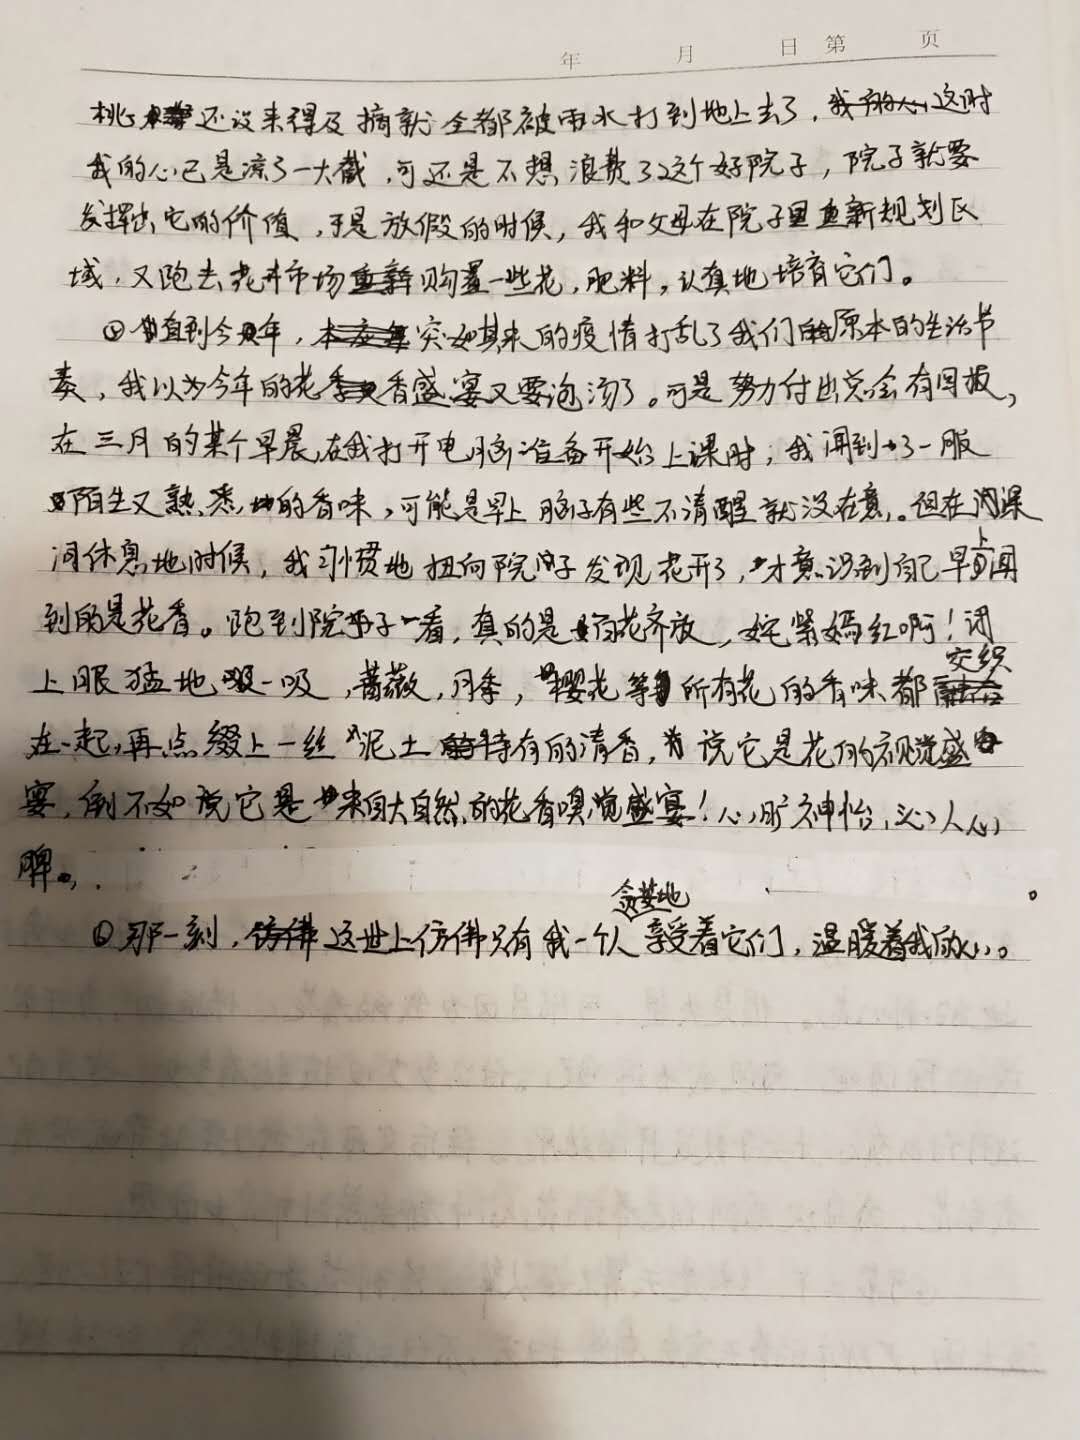 年 月 日 第 页
桃子还没来得及摘就全都被雨水打到地上去了，这时
我的心已是凉了一大截，可还是不想浪费了这个好院子，院子就要
发挥出它的价值，于是放假的时候，我和父母在院子里重新规划区
域，又跑去花卉市场重新购置一些花，肥料，认真地培育它们。
直到今年，突如其来的疫情打乱了我们原本的生活节
奏，我以为今年的花香盛宴又要泡汤了。可是努力付出总会有回报，
在三月的某个早晨，在我打开电脑准备开始上课时，我闻到了一股
陌生又熟悉的香味，可能是早上脑子有些不清醒就没在意。但在课
间休息地时候，我习惯地扭向院子发现花开了，才意识到自己早上闻
到的是花香。跑到院子一看，真的是百花齐放，姹紫嫣红啊！闭
上眼猛地一吸，蔷薇，月季，樱花等所有花的香味都交织
在一起，再点缀上一丝泥土特有的清香，说它是花的视觉盛
宴，倒不如说它是来自大自然的花香嗅觉盛宴！心旷神怡，沁人心
脾。
那一刻，这世上仿佛只有我一个人贪婪地享受着它们，温暖着我的心。